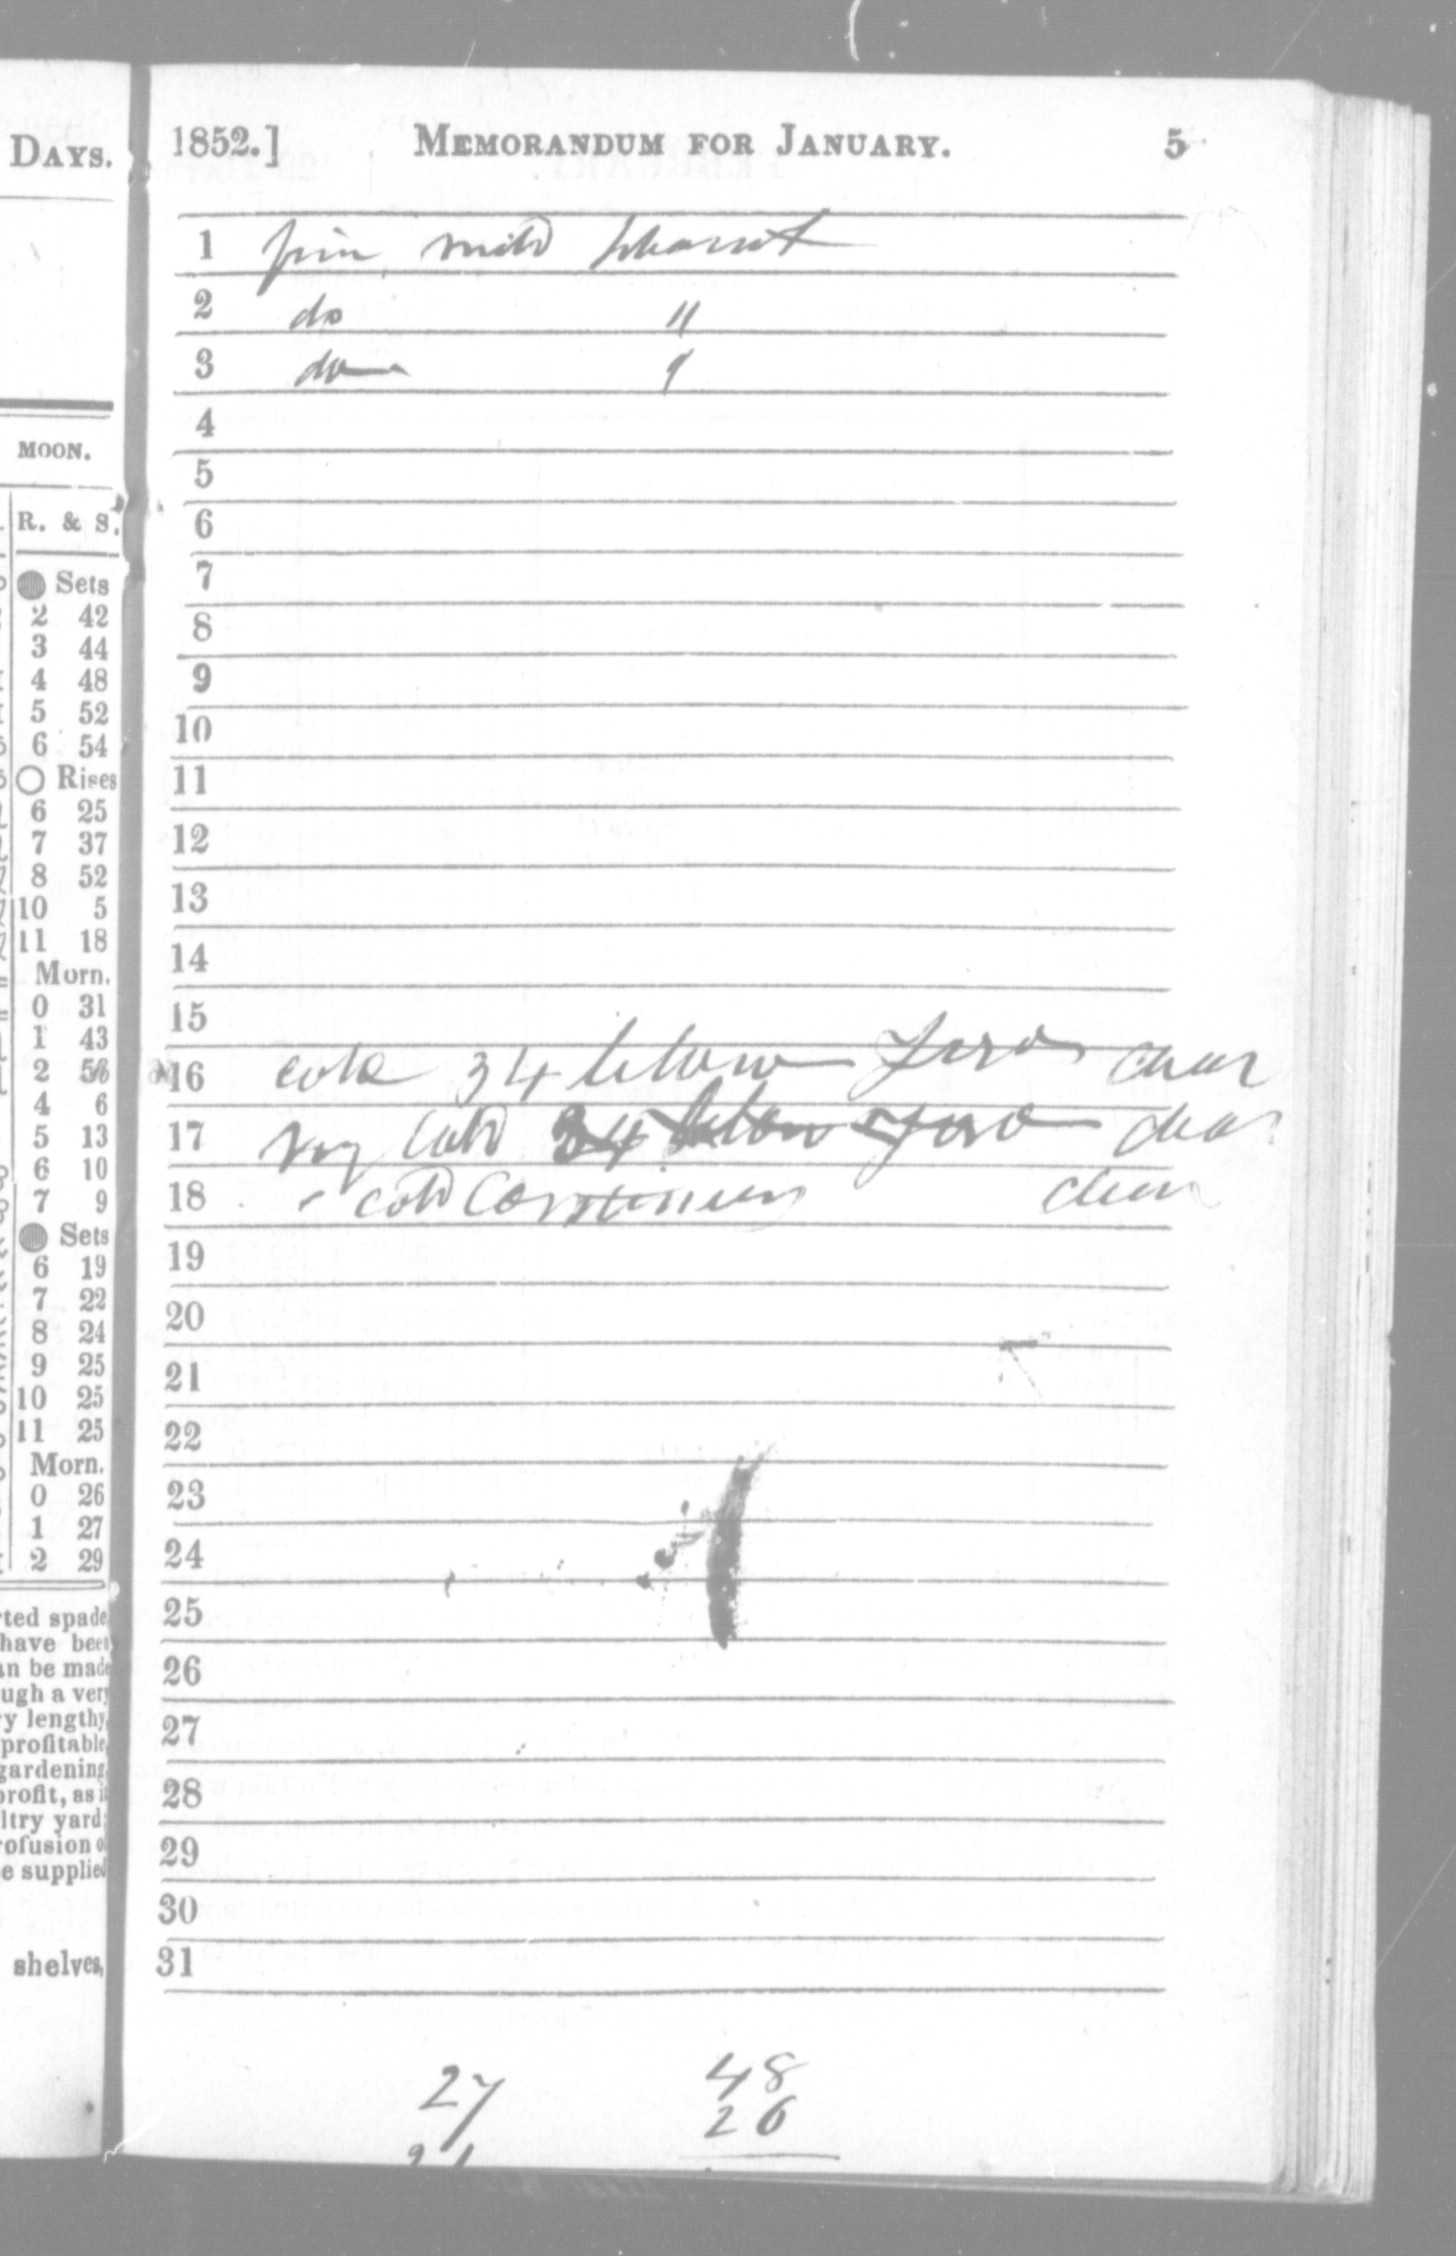 DAYS.
MOON.
R. & S.
Sets
2 42
3 44
4 48
5 52
6 54
Rises
6 25
7 37
8 52
10 5
11 18
Morn.
0 31
1 43
2 56
4 6
5 13
6 10
7 9
Sets
6 19
7 22
8 24
9 25
10 25
11 25
Morn.
0 26
1 27
2 29
rted spade
have been
an be made
ugh a very
ry lengthy,
profitable
gardening
profit, as i
ltry yard;
rofusion o
e supplied
shelves,
1852.] MEMORANDUM FOR JANUARY. 5
1 mild
2 do "
3 do "
4
5
6
7
8
9
10
11
12
13
14
15
16 cold 34 below clear
17 very cold 34 below clear
18 cold clear
19
20
21
22
23
24
25
26
27
28
29
30
31
27 48
26